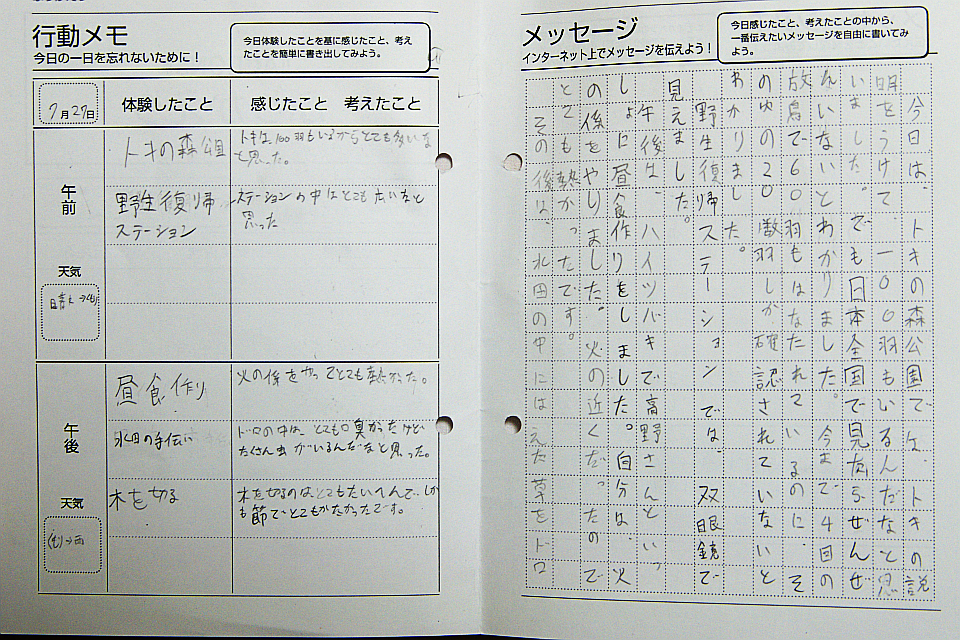 行動メモ
今日の一日を忘れないために！
今日体験したことを基に感じたこと、考え
たことを簡単に書き出してみよう。
7月27日
体験したこと
感じたこと 考えたこと
午前
トキの森公園
トキは100羽もいるからとても多いな
と思った。
野生復帰
ステーション
ステーションの中はとても広いなと
思った
天気
晴れ→くもり
午後
昼食作り
火の係をやってとても熱かった。
水田の手伝い
ドロの中は、とても臭かったけど
たくさん虫がいるんだなと思った。
木を切る
木を切るのはとてもたいへんで、しか
も節で、とてもかたかったです。
天気
くもり→雨
メッセージ
インターネット上でメッセージを伝えよう！
今日感じたこと、考えたことの中から、
一番伝えたいメッセージを自由に書いてみ
よう。
今日は、トキの森公園で、トキの説
明をうけて一〇〇羽もいるんだなと思
いました。でも日本全国で見たらぜんぜ
んいないとわかりました。今まで4回の
放鳥で60羽もはなたれているのに、そ
の中の20数羽しか確認されていないと
わかりました。
野生復帰ステーションでは、双眼鏡で
見えました。
午後は、ハイツバキで高野さんといっ
しょに昼食作りをしました。自分は、火
の係をやりました。火の近くだったので
とても熱かったです。
その後は、水田の中にはえた草をドロ